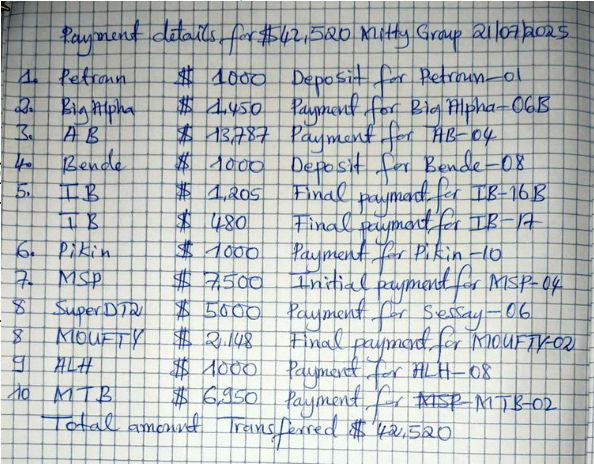 Payment details for $42,520 Mitty Group 21/07/2025
1. Petroun $ 1000 Deposit for Petroun-01
2. BigAlpha $ 1,450 Payment for BigAlpha-06B
3. AB $ 13,787 Payment for AB-04
4. Bende $ 1000 Deposit for Bende-08
5. IB $ 1,205 Final payment for IB-16B
IB $ 480 Final payment for IB-17
6. Pikin $ 1000 Payment for Pikin-10
7. MSP $ 7,500 Initial payment for MSP-04
8 SuperDT2 $ 5000 Payment for Sessay-06
8 MOUFTY $ 2,148 Final payment for MOUFTY-02
9 ALH $ 1000 Payment for ALH-08
10 MTB $ 6,950 Payment for MSP-MTB-02
Total amount Transferred $ 42,520